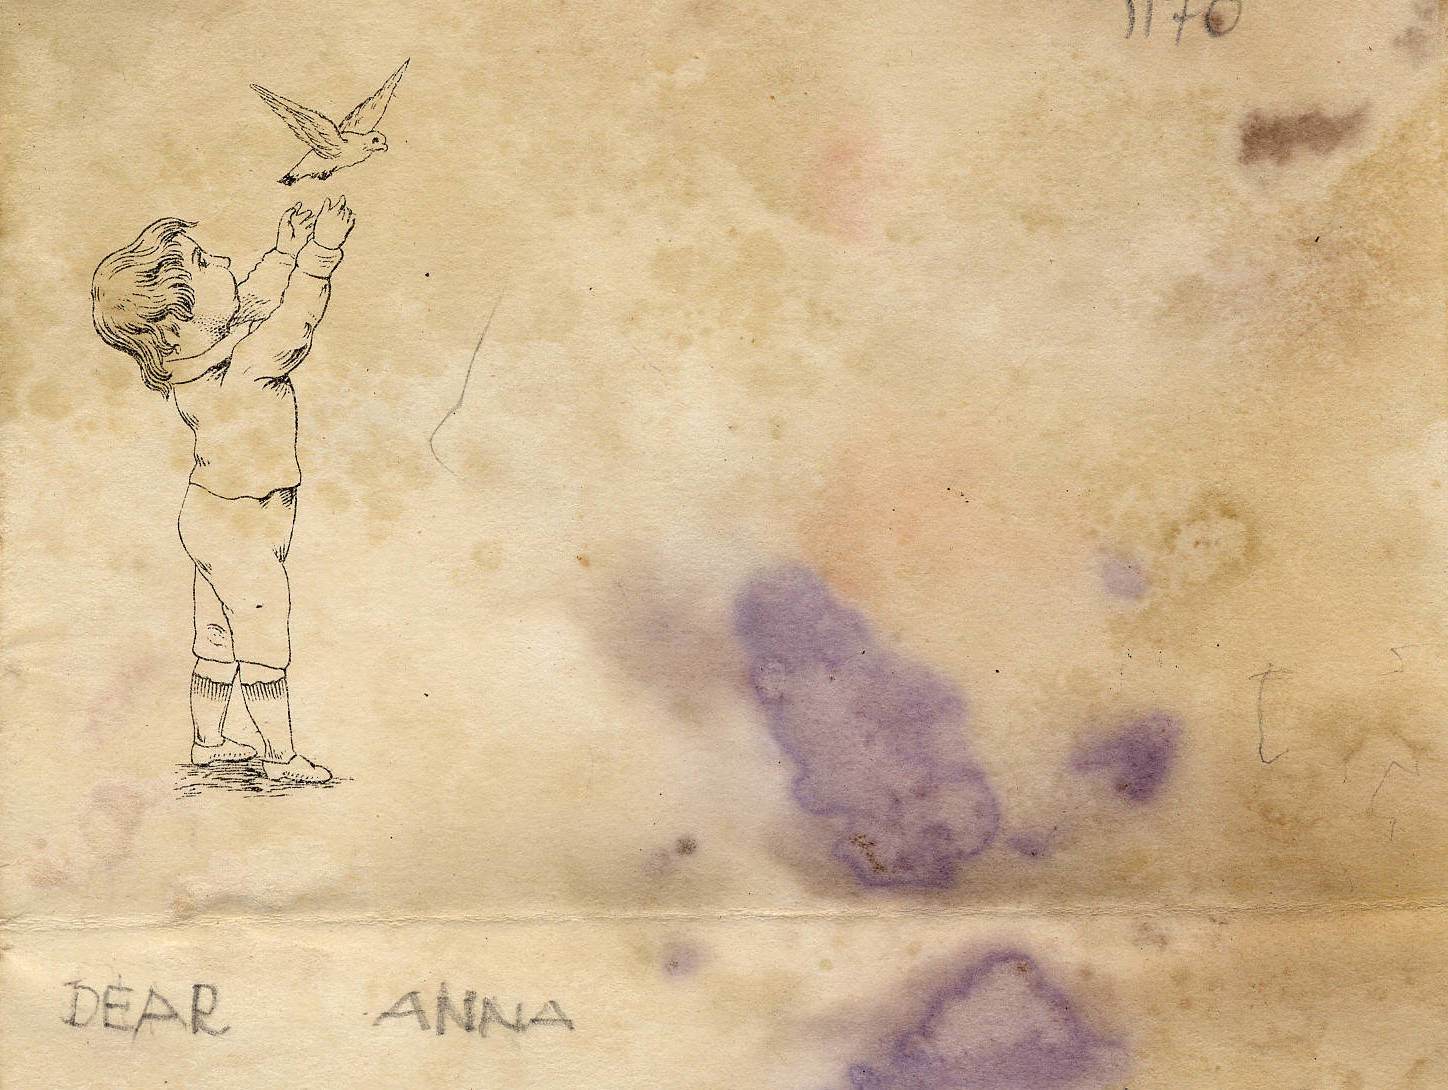 1170
DEAR ANNA